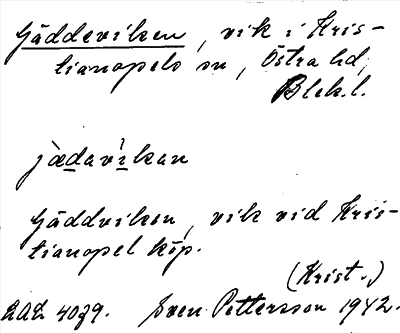 Gäddeviken, vik i Kris-
tianopels sn, Östra hd,
Blek.l.
jædavìkan
Gäddviken, vik vid Kris-
tianopel köp.
(Krist.)
Sven Pettersson 1942.